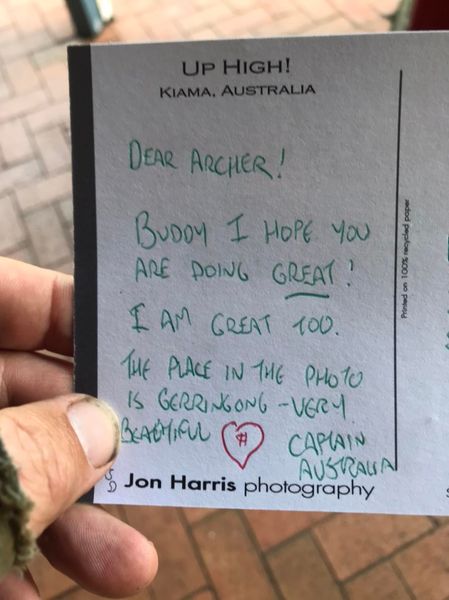 UP HIGH!
KIAMA, AUSTRALIA
DEAR ARCHER!
BUDDY I HOPE YOU
ARE DOING GREAT!
I AM GREAT TOO.
THE PLACE IN THE PHOTO
IS GERRINGONG - VERY
BEAUTIFUL
#
CAPTAIN
AUSTRALIA
Jon Harris photography
Printed on 100% recycled paper